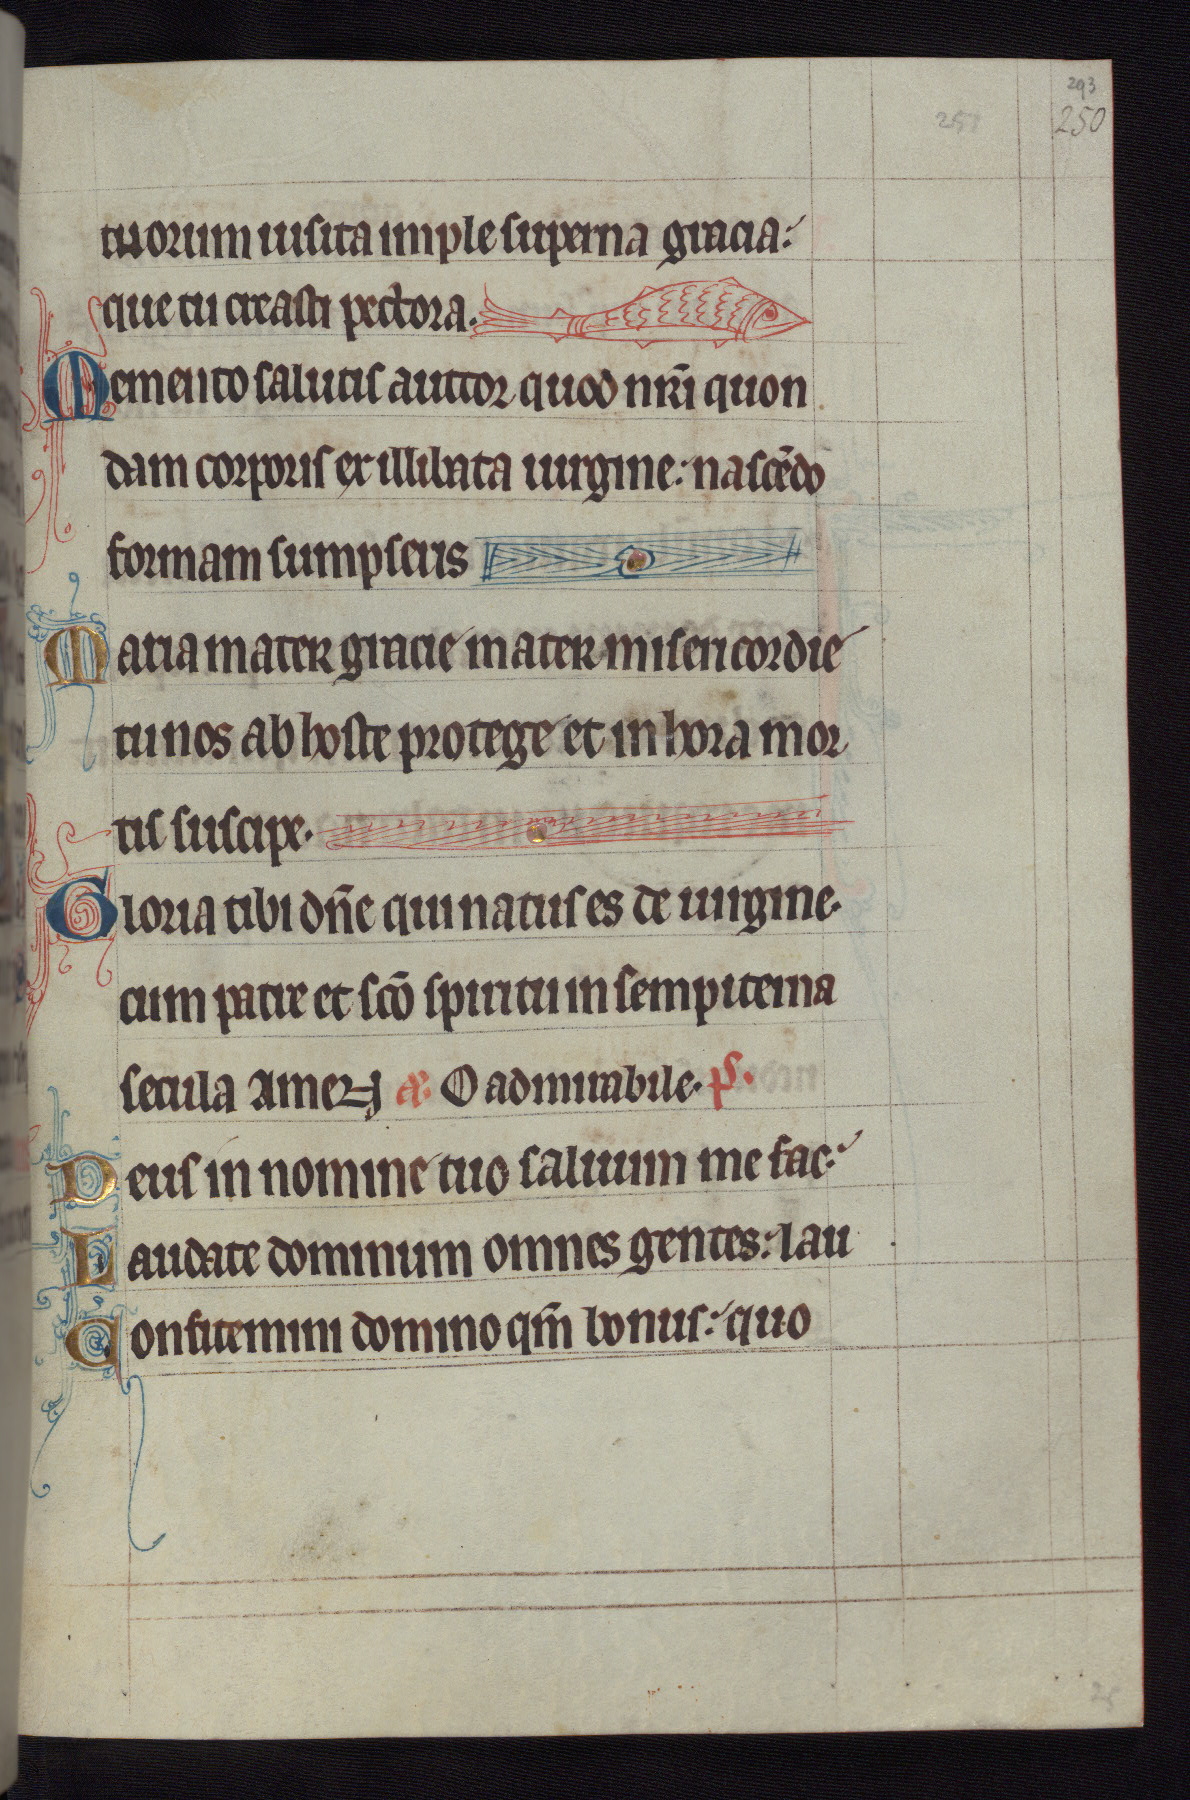 293
250
251
tuorum uisita imple superna gracia:
que tu creasti pectora.
Memento salutis auctor quod nr̄i quon
dam corporis ex illibata uirgine: nascēdo
formam sumpseris
Maria mater gracie mater misericordie
tu nos ab hoste protege et in hora mor
tis suscipe.
Gloria tibi dn̄e qui natus es de uirgine.
cum patre et sc̄o spiritu in sempiterna
secula Amen a. O admirabile. ps.
Deus in nomine tuo saluum me fac:
Laudate dominum omnes gentes: lau
Confitemini domino qm̄ bonus: quo